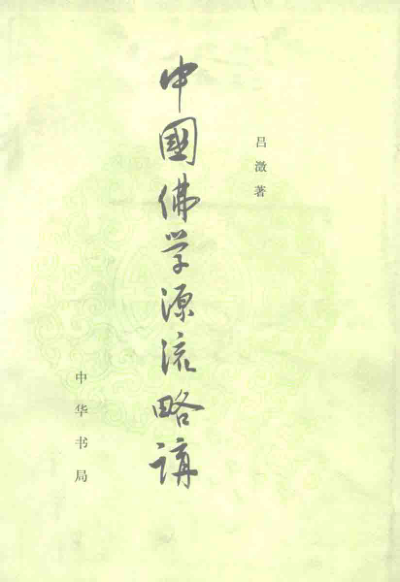 吕澂著
中國佛学源流略講
中华书局